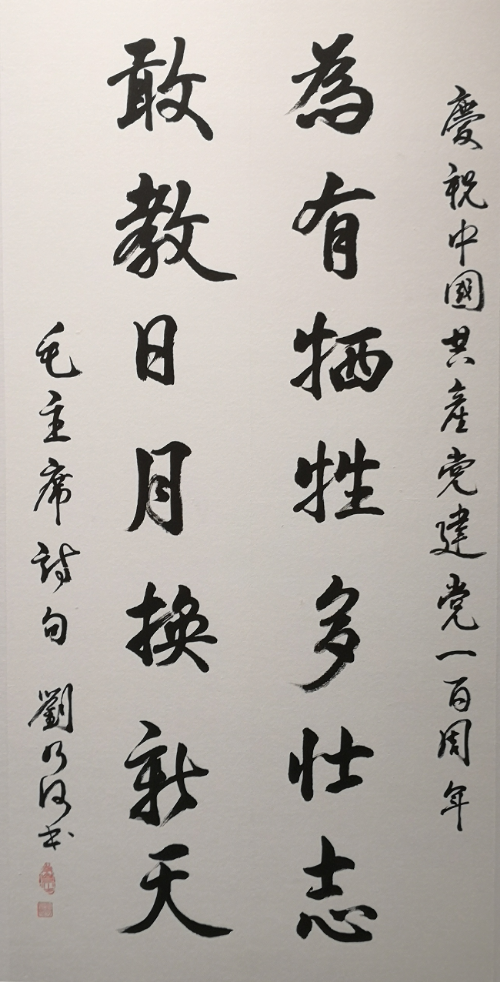 慶祝中國共產党建党一百周年
為有牺牲多壮志
敢教日月换新天
毛主席詩句 劉乃河书